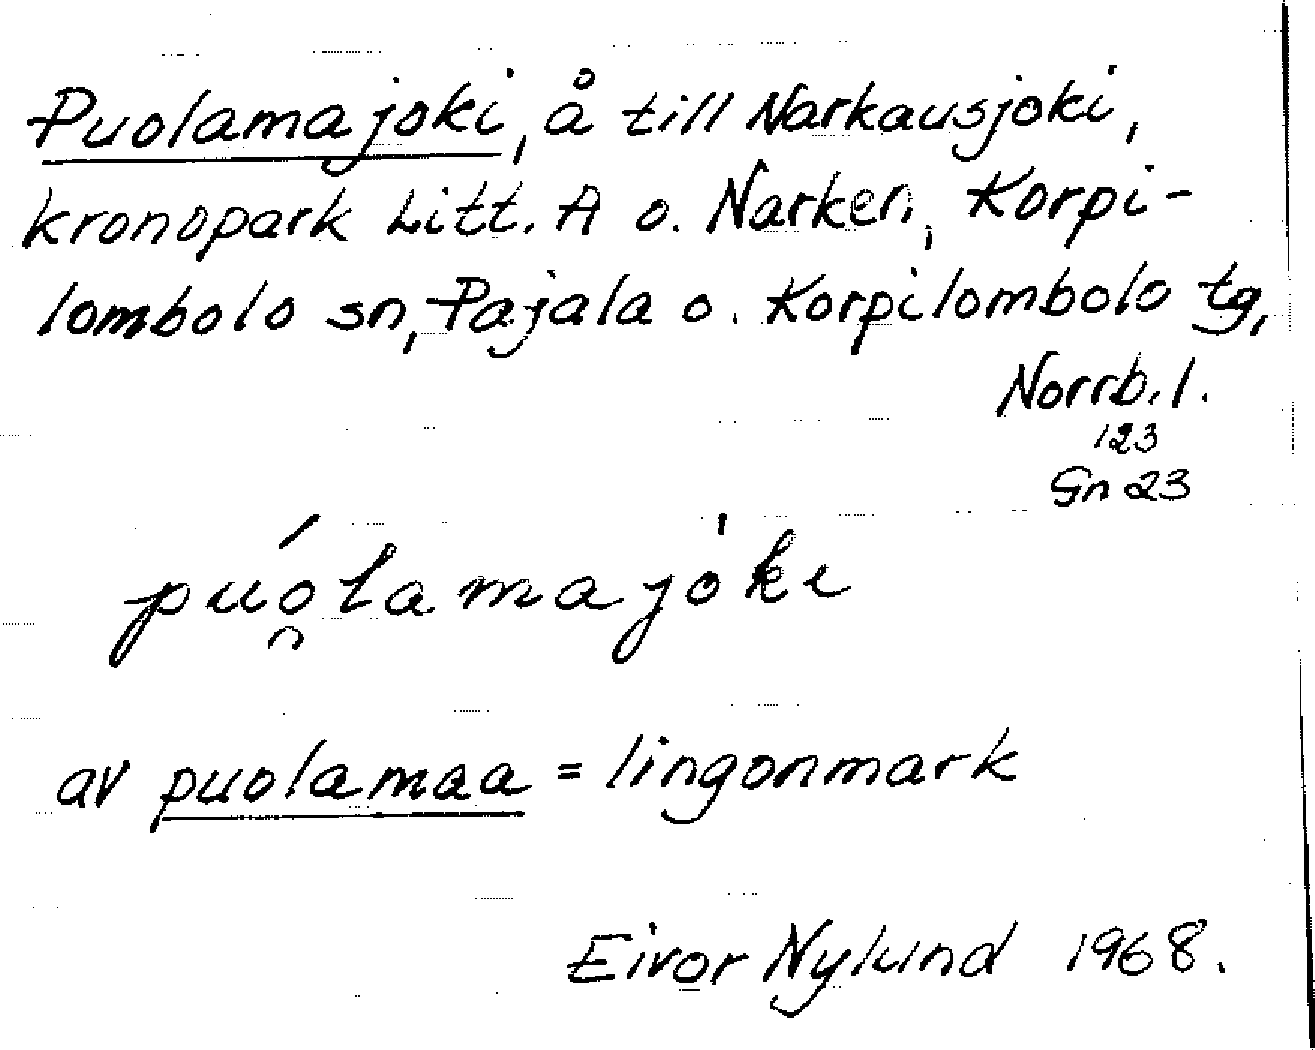 Puolamajoki, å till Narkausjoki,
kronopark Litt. A o. Narken, Korpi-
lombolo sn, Pajala o. Korpilombolo tg,
Norrb. l.
123
Gn 23
puó̯lamajòki
av puolamaa = lingonmark
Eivor Nylund 1968.